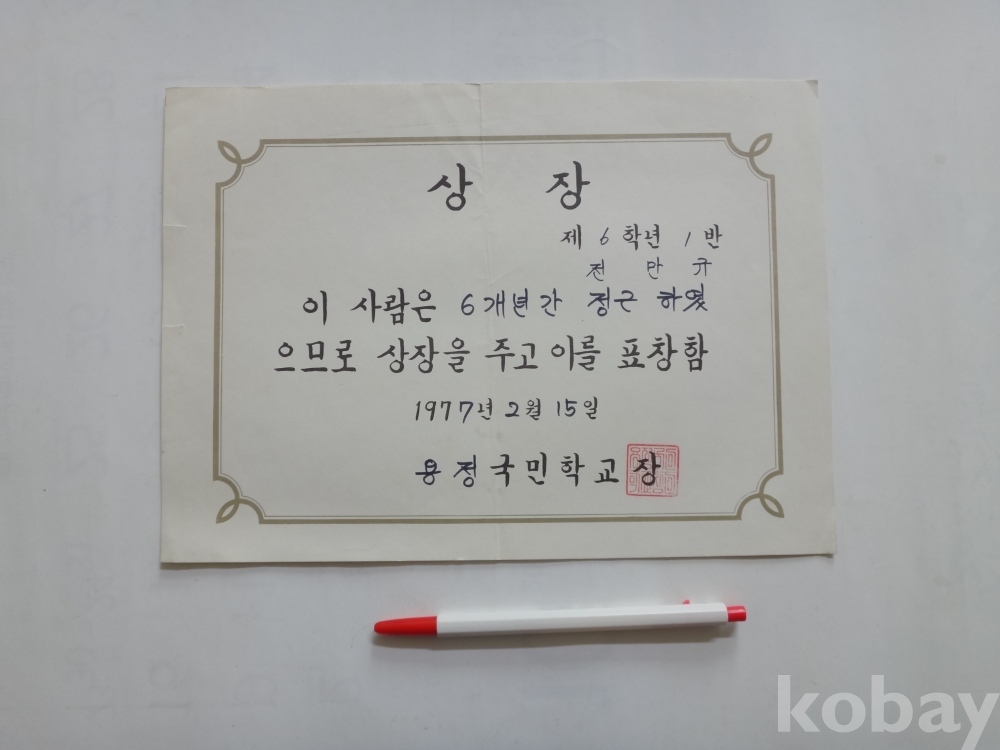 상 장
제 6 학년 1 반
전 만 규
이 사람은 6개년간 정근 하였
으므로 상장을 주고 이를 표창함
1977년 2월 15일
용정국민학교장
kobay